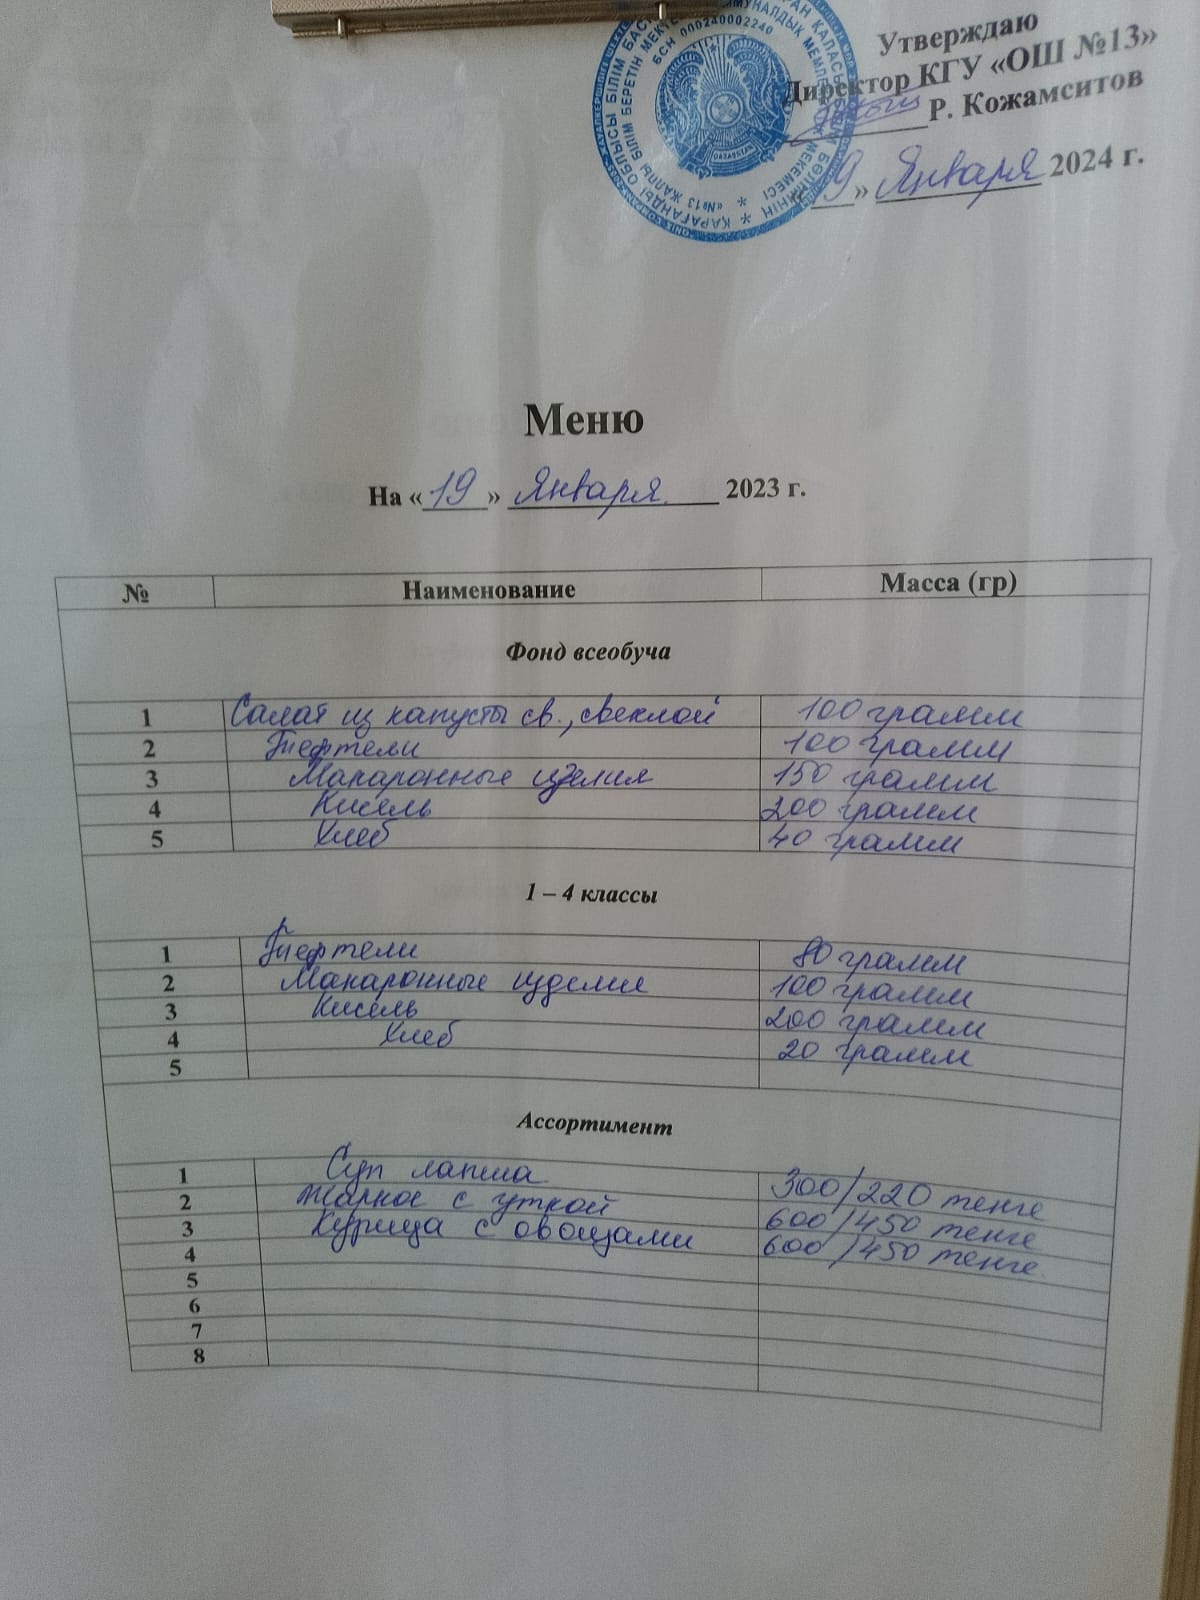 Утверждаю
Директор КГУ «ОШ №13»
Р. Кожамситов
«19» Января 2024 г.
БСН 000240002240
QAZAQSTAN
Меню
На «19» Января 2023 г.
№ Наименование Масса (гр)
Фонд всеобуча
1 Салат из капусты св., свеклой 100 грамм
2 Тефтели 100 грамм
3 Макаронные изделия 150 грамм
4 Кисель 200 грамм
5 Хлеб 40 грамм
1 – 4 классы
1 Тефтели 80 грамм
2 Макаронные изделия 100 грамм
3 Кисель 200 грамм
4 Хлеб 20 грамм
5
Ассортимент
1 Суп лапша 300/220 тенге
2 Жаркое с уткой 600/450 тенге
3 Курица с овощами 600/450 тенге.
4
5
6
7
8